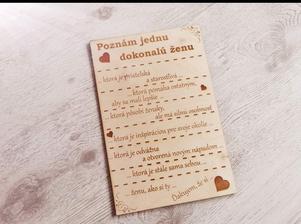 Poznám jednu
dokonalú ženu
... ktorá je priateľská
a starostlivá ...
... ktorá pomáha ostatným,
aby sa mali lepšie ...
... ktorá pôsobí žensky,
ale má silnú osobnosť
... ktorá je inšpiráciou pre svoje okolie
... ktorá je odvážna
a otvorená novým nápadom ...
... ktorá je stále sama sebou ...
... ženu, ako si ty ...
Ďakujem, že si